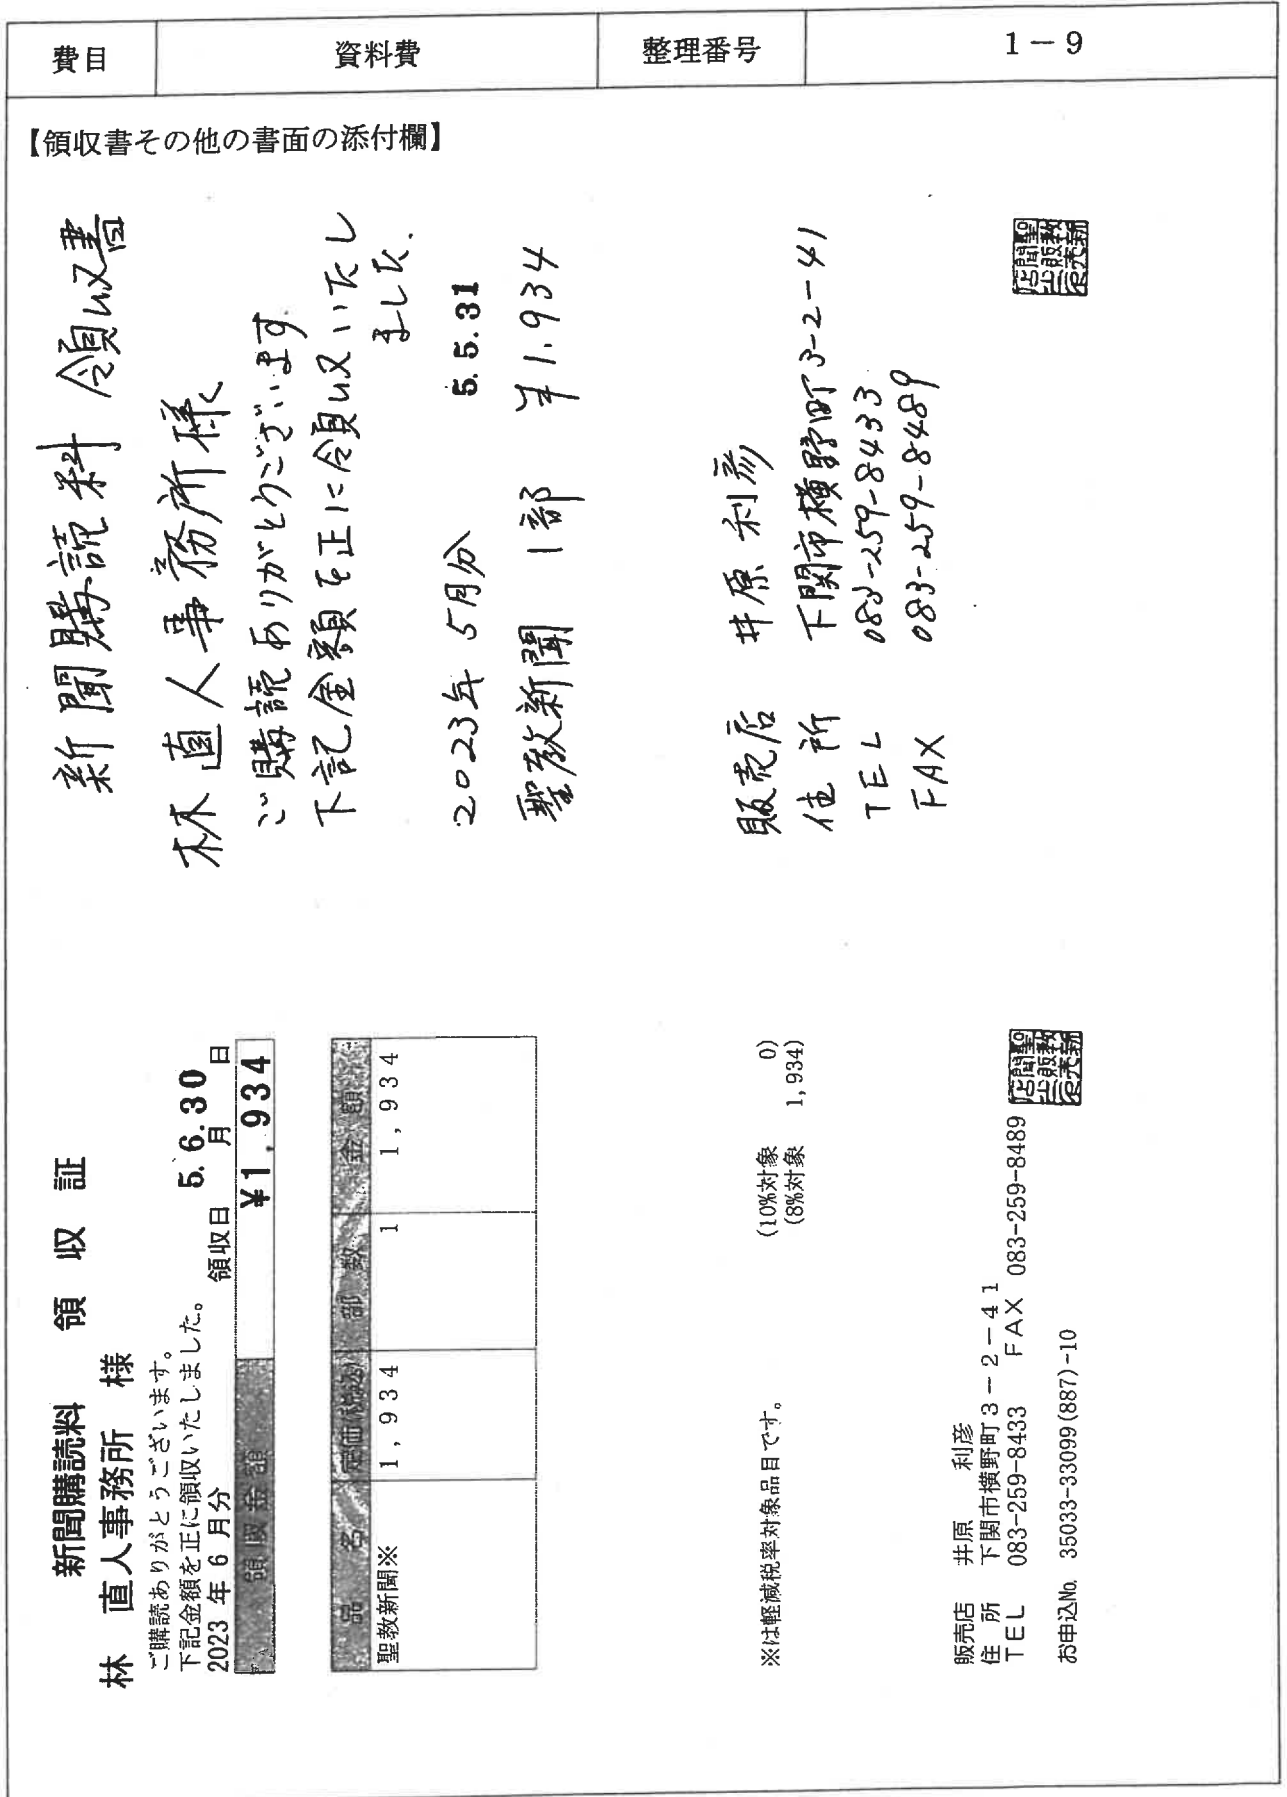 費目 資料費 整理番号 1－9
【領収書その他の書面の添付欄】
新聞購読料 領収書
林直人事務所様
ご購読ありがとうございます
下記金額を正に領収いたし
ました.
2023年 5月分 5.5.31
聖教新聞 1部 ¥1.934
販売店 井原利彦
住所 下関市横野町3-2-41
TEL 083-259-8433
FAX 083-259-8489
聖教新聞販売店
新聞購読料 領収証
林 直人事務所 様
ご購読ありがとうございます。
下記金額を正に領収いたしました。
2023年6月分 領収日 5.6.30 月 日
領収金額 ¥1,934
品名 定価(税込) 部数 金額
聖教新聞※ 1,934 1 1,934
※は軽減税率対象品目です。 (10%対象 0)
(8%対象 1,934)
販売店 井原 利彦
住所 下関市横野町3－2－41
TEL 083-259-8433 FAX 083-259-8489
お申込No. 35033-33099(887)-10